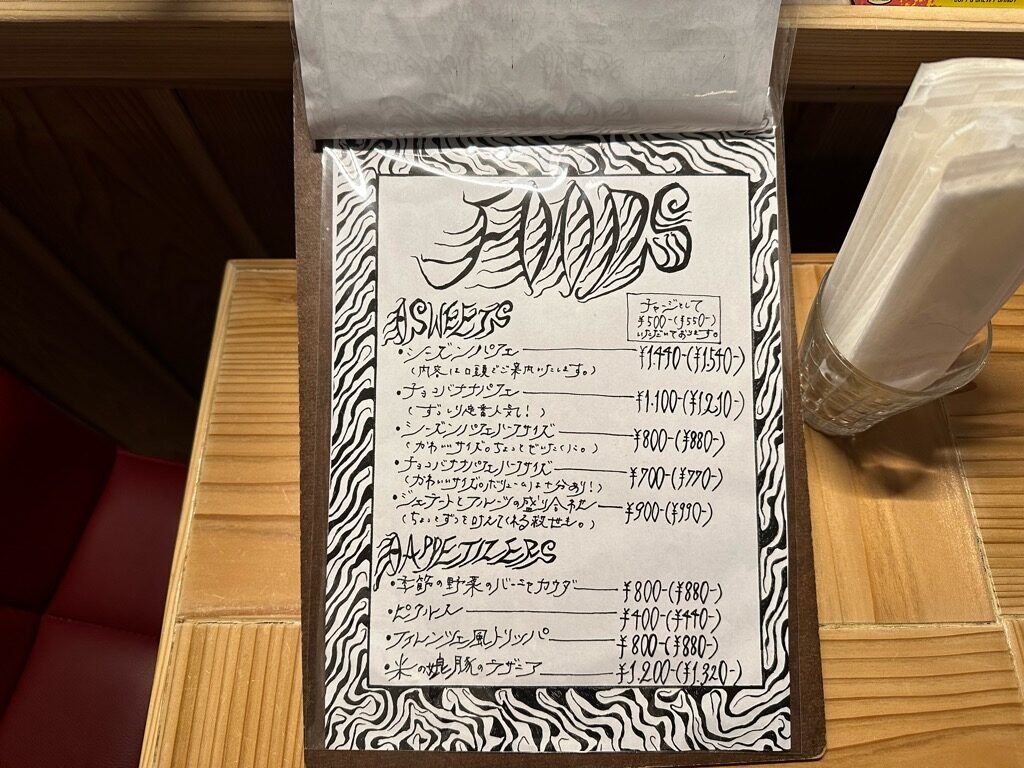 FOODS
チャージとして
¥500-(¥550-)
いただいております。
SWEETS
・シーズンパフェ ¥1.440-(¥1.540-)
(内容は口頭でご案内いたします。)
・チョコバナナパフェ ¥1.100-(¥1.210-)
(ずっしり人気!)
・シーズンパフェハーフサイズ ¥800-(¥880-)
(かわいいサイズ。ちょっとぜいたくに。)
・チョコバナナパフェハーフサイズ ¥700-(¥770-)
(かわいいサイズ。ボリュームは十分あり!)
・ジェラートとフルーツの盛り合わせ ¥900-(¥990-)
APPETIZERS
・季節の野菜のバーニャカウダ ¥800-(¥880-)
・ピクルス ¥400-(¥440-)
・フィレンツェ風トリッパ ¥800-(¥880-)
・米の娘豚のラザニア ¥1.200-(¥1.320-)